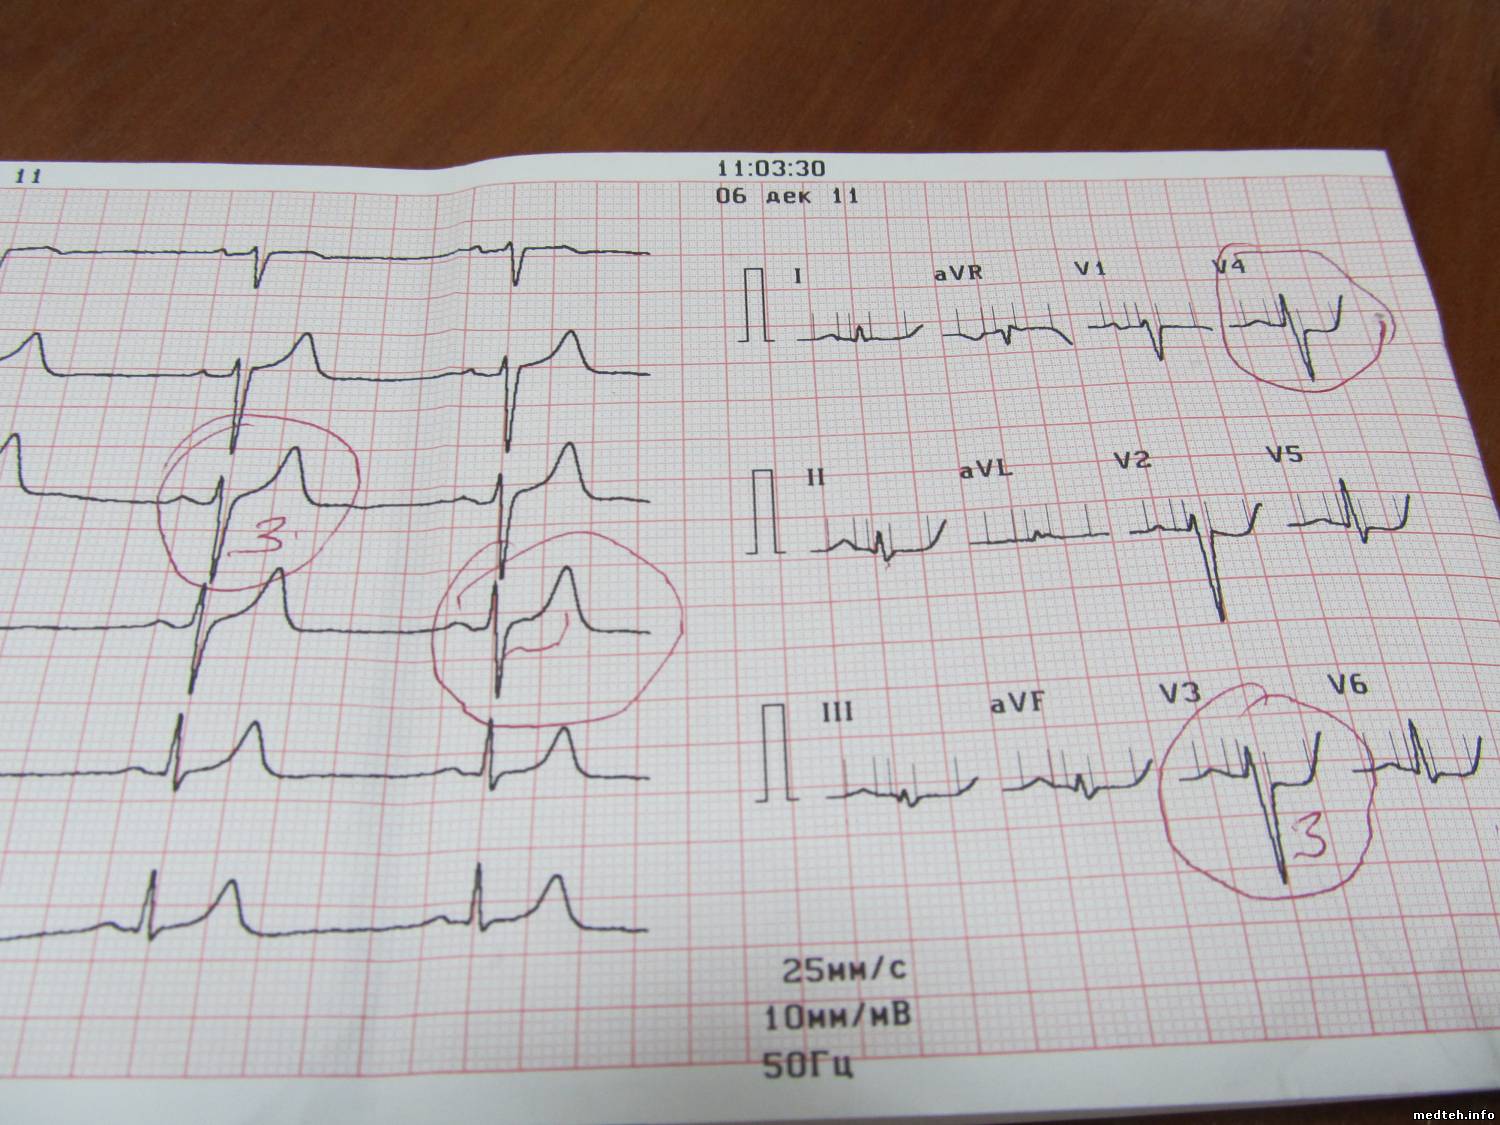 11
11:03:30
06 дек 11
I aVR V1 V4
II aVL V2 V5
III aVF V3 V6
3
3
25мм/с
10мм/мВ
50Гц
medteh.info